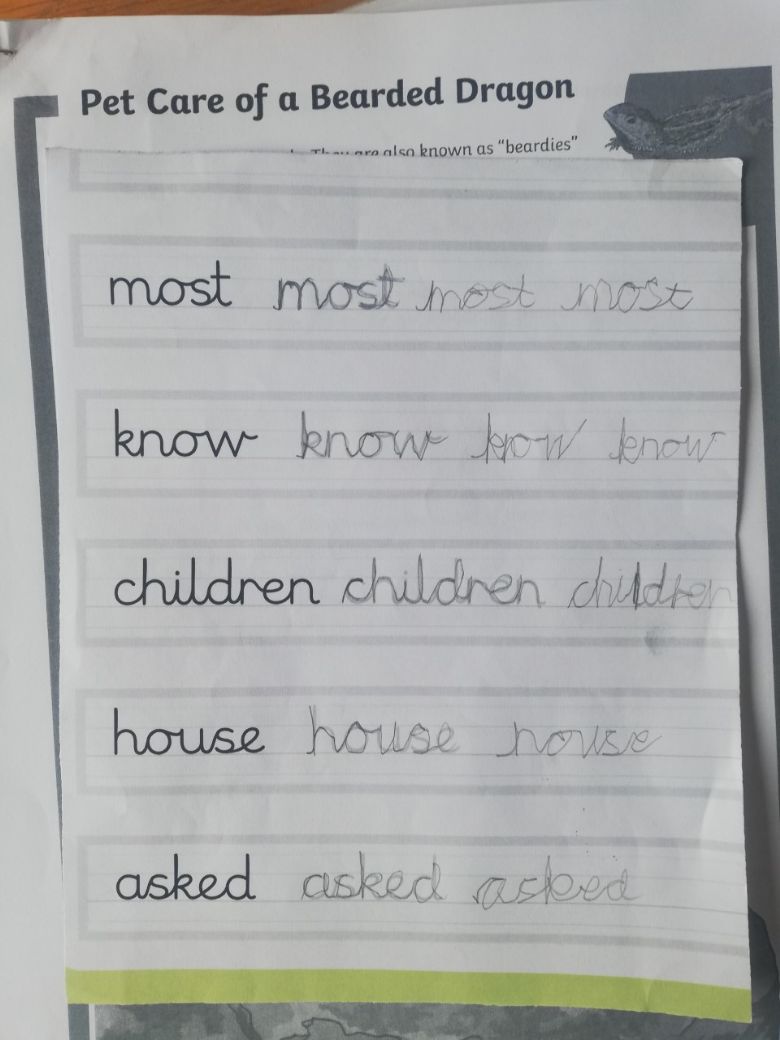 Pet Care of a Bearded Dragon
are also known as "beardies"
most most most most
know know know know
children children children
house house house
asked asked asked